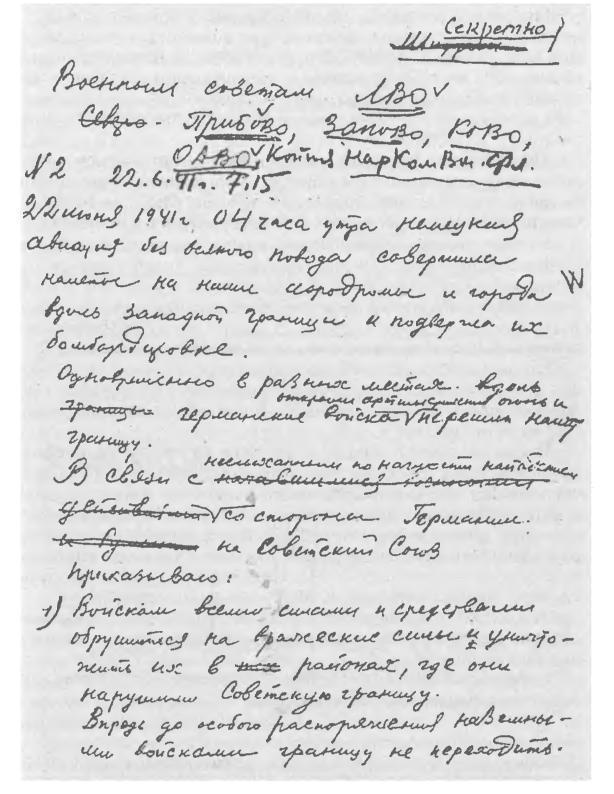 Секретно
Шифром
Военным советам ЛВО
Северо - Прибово, Запово,Ково,
ОдВО, Копия НарКомВм. Фл.
N 2 22.6.41г. 7.15
22 июня 1941г. 04 часа утра немецкая
авиация без всякого повода совершила
налеты на наши аэродромы и города
вдоль западной границы и подвергла их
бомбардировке.
Одновременно в разных местах вдоль
открыли артиллерийский огонь и
границы германские войска перешли нашу
границу.
неслыханным по наглости нападением
В связи с
действий со стороны Германии.
на Советский Союз
Приказываю:
1) Войскам всеми силами и средствами
обрушиться на вражеские силы и уничто-
жить их в тех районах, где они
нарушили Советскую границу.
Впредь до особого распоряжения наземны-
ми войсками границу не переходить.